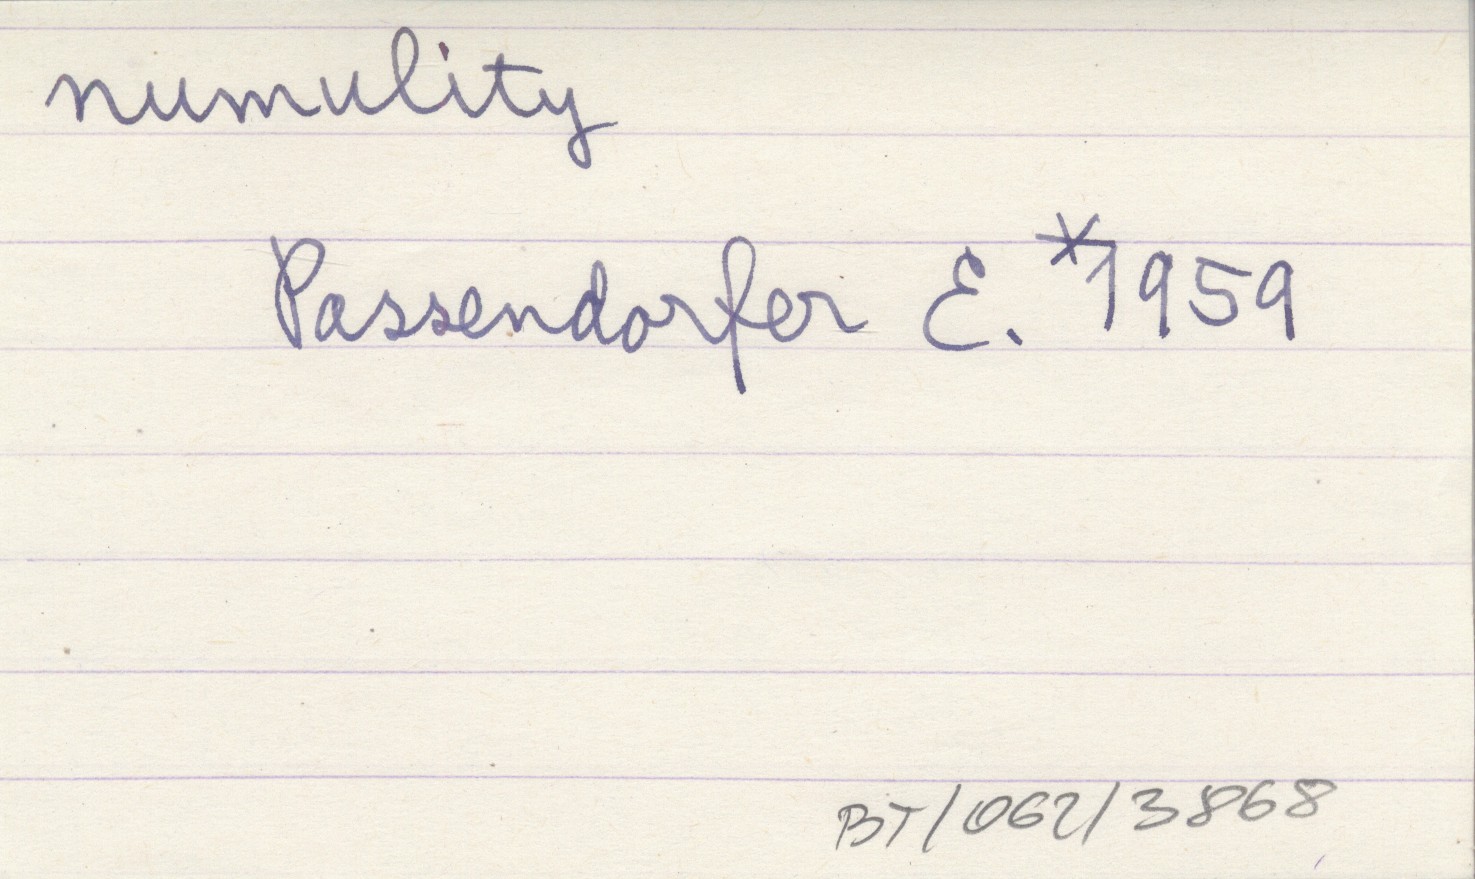 numulity
Passendorfer E. *1959
BT/062/3868